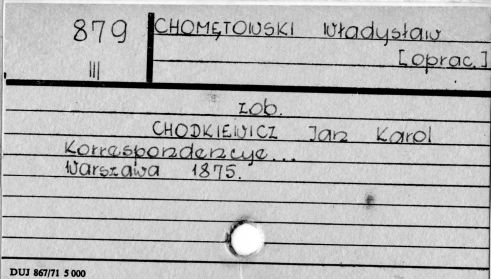 879
III
CHOMĘTOWSKI Władysław
[oprac.]
zob.
CHODKIEWICZ Jan Karol
Korrespondencye...
Warszawa 1875.
DUJ 867/71 5 000